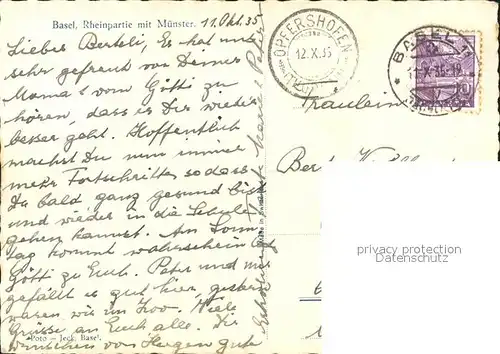 Basel, Rheinpartie mit Münster. 11. Okt. 35
Liebes Berteli, Es hat uns
sehr gefreut von Deiner
Mama & vom Götti zu
hören, dass es Dir wieder
besser geht. Hoffentlich
machst Du nun immer
mehr Fortschritte, sodass
Du bald ganz gesund bist
und wieder in die Schule
gehen kannst. Am Sonn
tag kommt wahrscheinlich
Götti zu Euch. Peter und mir
gefällt es gut hier, gestern
waren wir im Zoo. Viele
Grüsse an Euch alle. Die
wünschen von Herzen gute
Foto — Jeck, Basel.
Tante & Peter
OPFERSHOFEN
12. X. 35
BASEL
11. X. 35
10
Fräulein
privacy protection
www.ansichtskartenversand.com